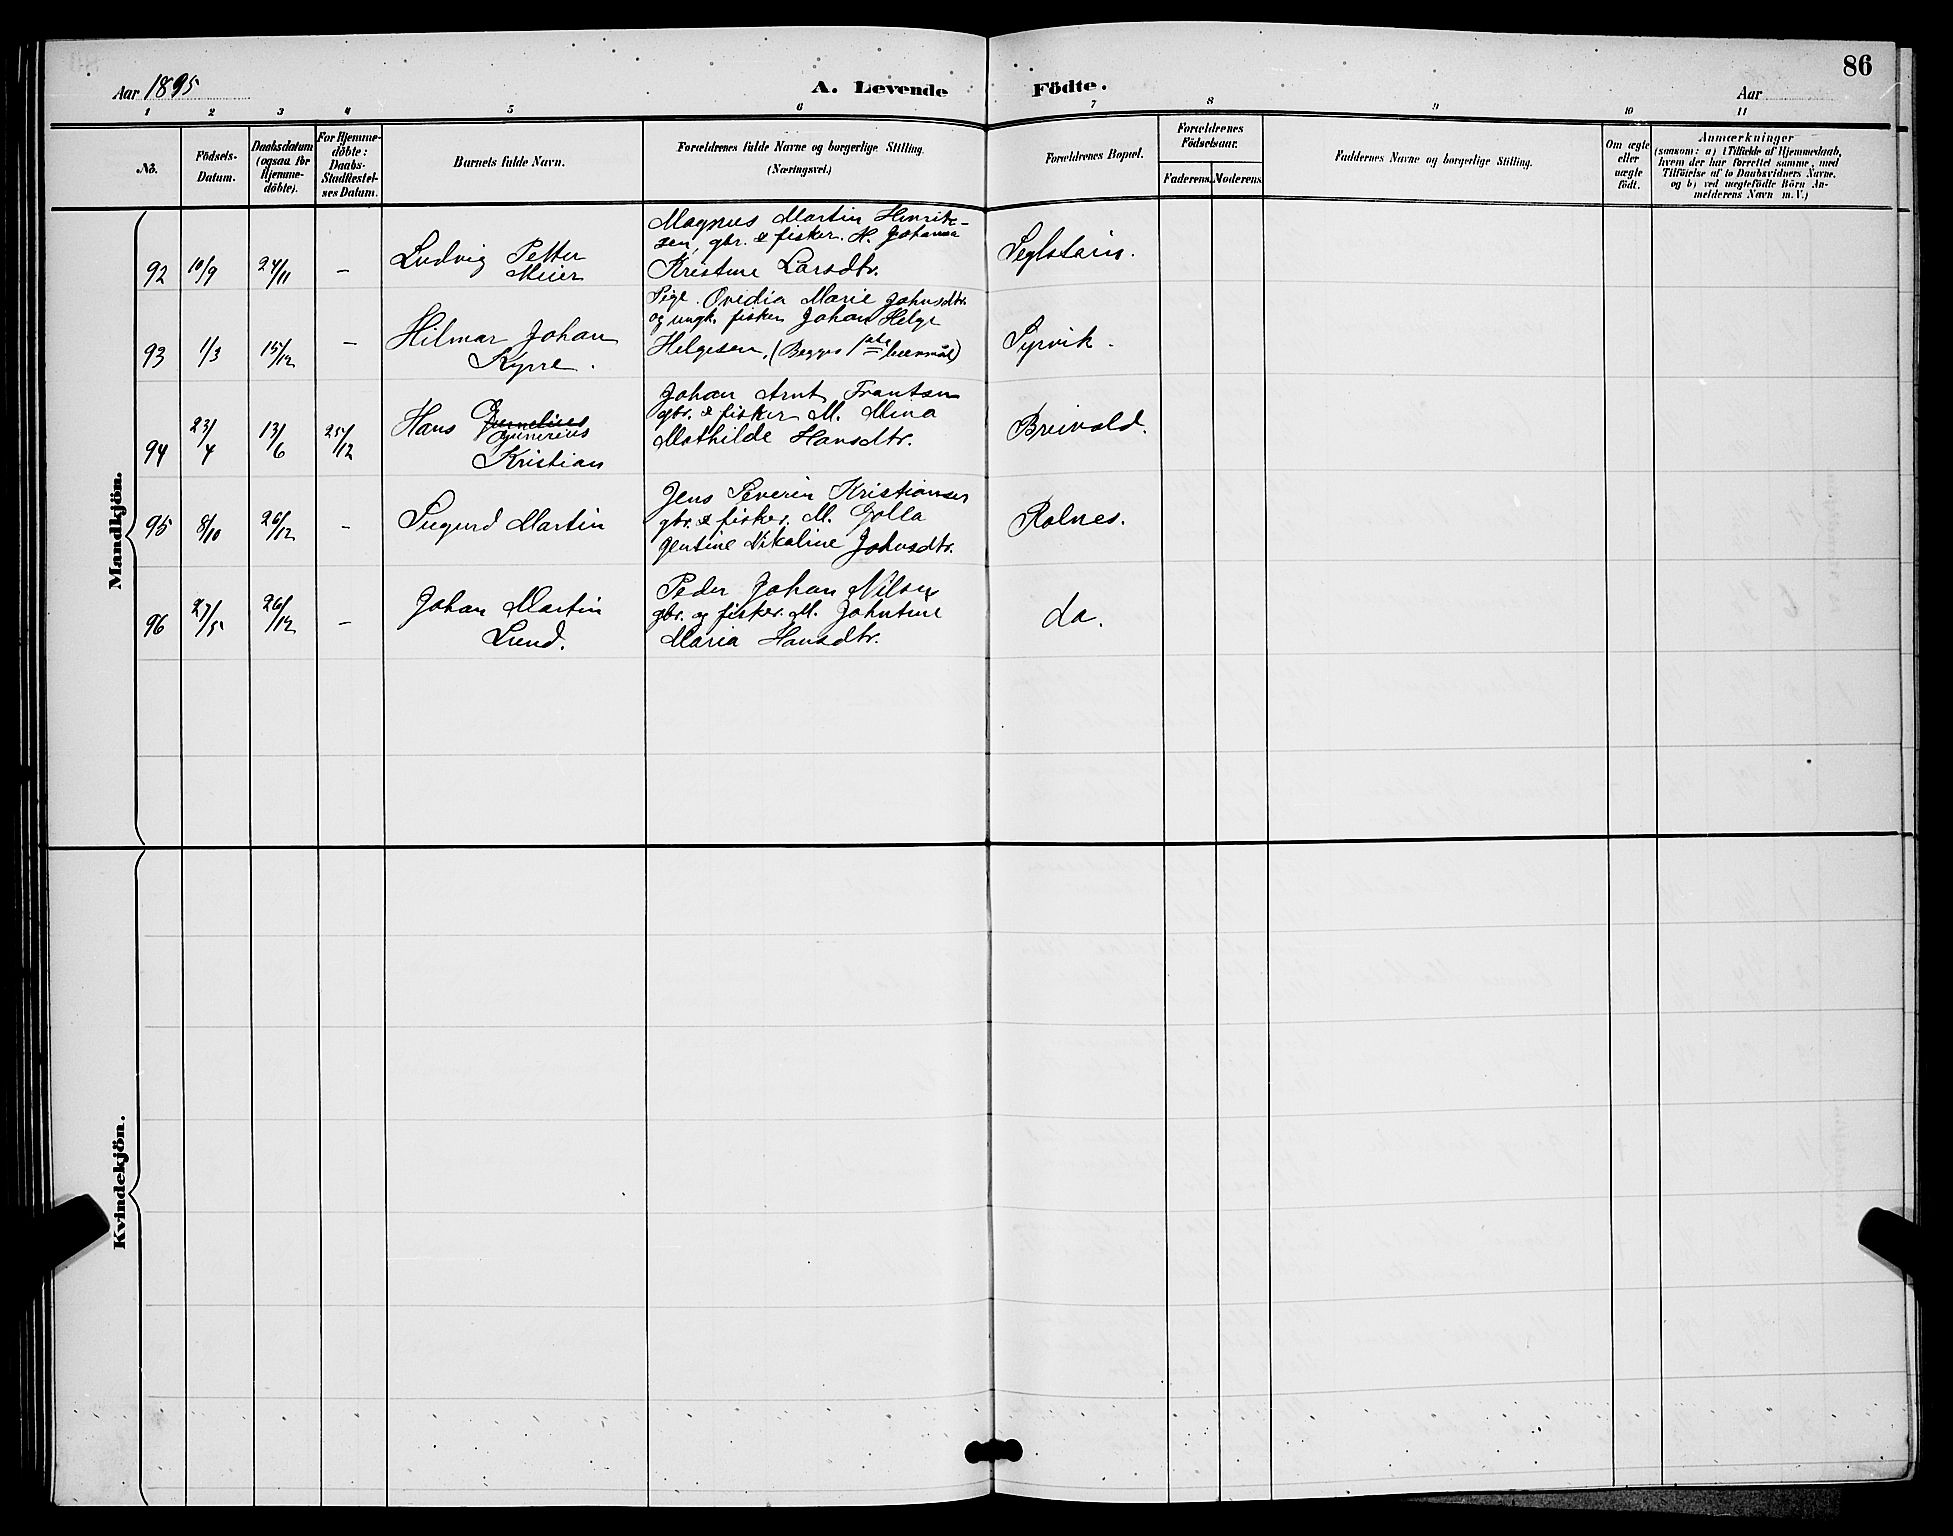 86
Aar 1895
A. Levende Födte.
Aar
1 2 3 4 5 6 7 8 9 10 11
No.
Födsels-Datum.
Daabsdatum (ogsaa for Hjemme-döbte).
For Hjemme-döbte: Daabs-Stadfestel-ses Datum.
Barnets fulde Navn.
Forældrenes fulde Navne og borgerlige Stilling. (Næringsvei.)
Forældrenes Bopæl.
Forældrenes Födselsaar.
Faderens. Moderens.
Faddernes Navne og borgerlige Stilling.
Om ægte eller uægte födt.
Anmærkninger
(saasom: a) i Tilfælde af Hjemmedaab, hvem der har forrettet samme, med Tilföielse af to Daabsvidners Navne, og b) ved uægtefödte Börn An-melderens Navn m. V.)
Mandkjön.
92 10/9 24/11 – Ludvig Petter Meier
Magnus Martin Henrik-
sen, gbr. & fisker. H. Johanna
Kristine Larsdtr.
Seglstein.
93 1/3 15/12 – Hilmar Johan Kyrre.
Pige Ovedia Marie Johnsdtr.
og ungk. fisker Johan Helge
Helgesen, (Begges 1ste leiermål)
Syrvik.
94 23/4 13/6 25/12 Hans Cornelius Gunerius Kristian
Johan Arnt Frantsen
gbr. & fisker M. Mina
Mathilde Hansdtr.
Breivold.
95 8/10 26/12 – Sugurd Martin
Jens Severin Kristiansen
gbr. & fisker. M. Golla
Gentine Nikoline Johnsdtr.
Rolnes.
96 27/5 26/12 – Johan Martin Lund.
Peder Johan Nilsen
gbr. og fisker. M. Johntine
Maria Hansdtr.
do.
Kvindekjön.